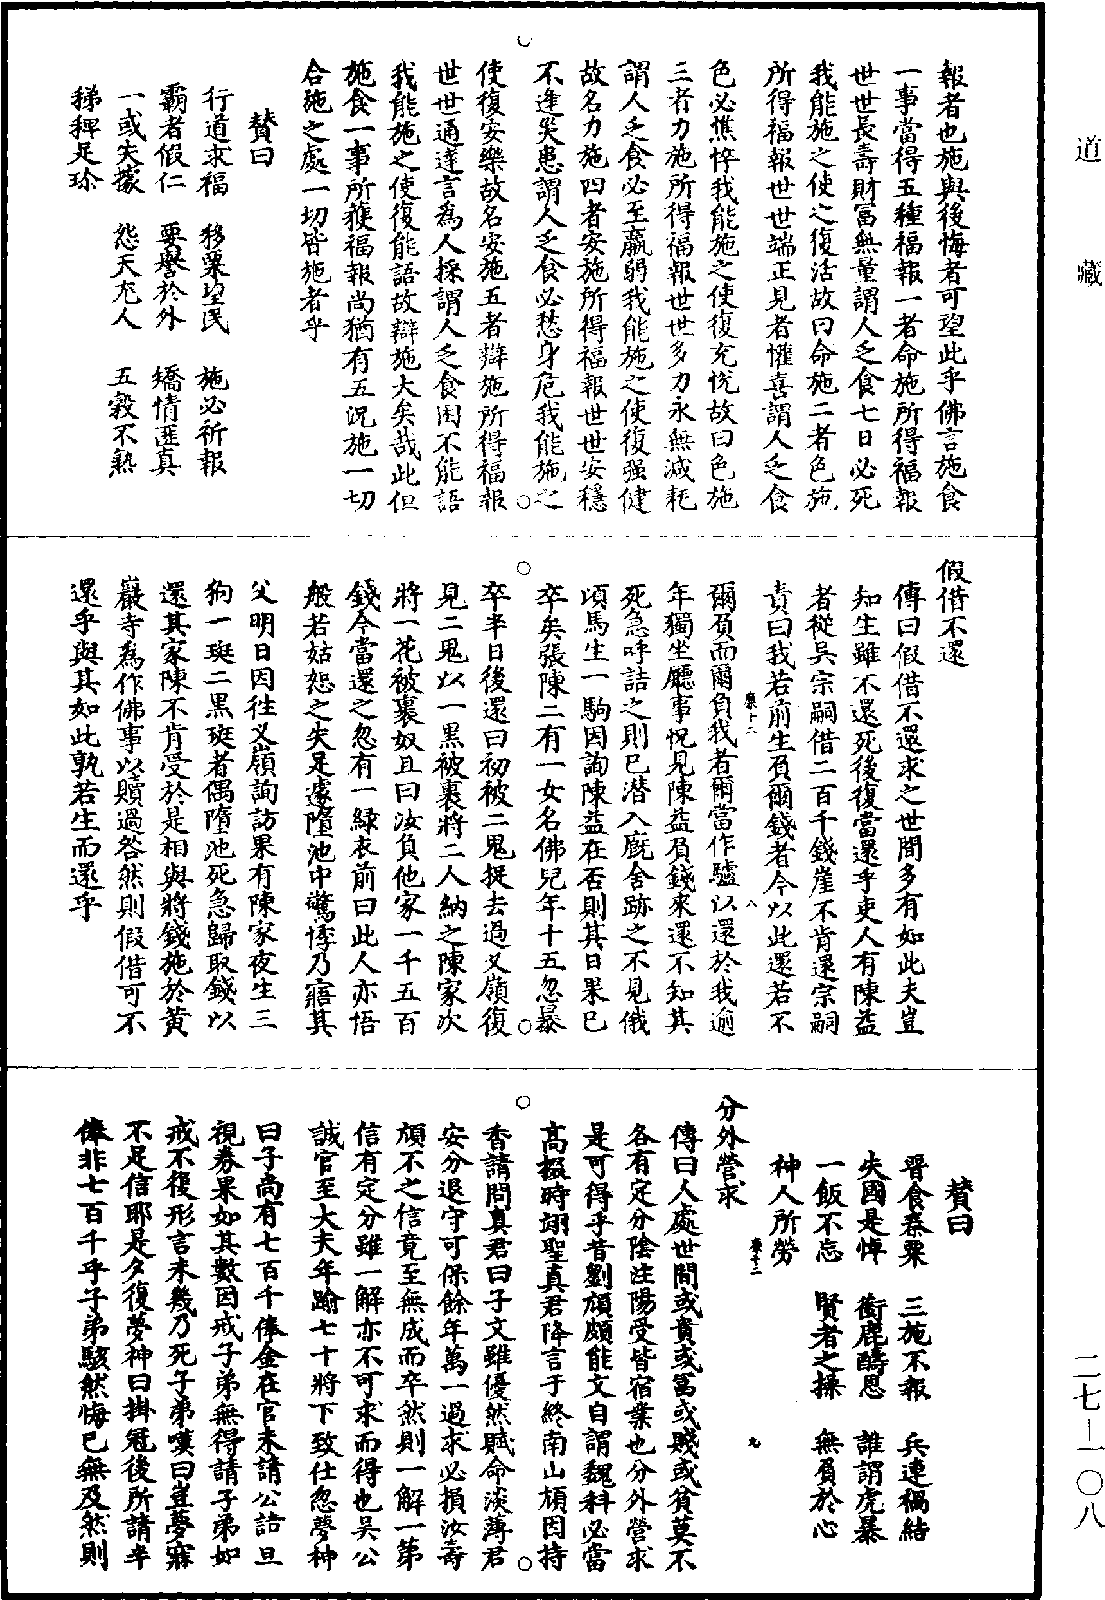 道藏
報者也施與後悔者可望此乎佛言施食
一事當得五種福報一者命施所得福報
世世長壽財富無量謂人乏食七日必死
我能施之使之復活故曰命施二者色施
所得福報世世端正見者懽喜謂人乏食
色必憔悴我能施之使復充悅故曰色施
三者力施所得福報世世多力永無減耗
謂人乏食必至羸弱我能施之使復强健
故名力施四者安施所得福報世世安穩
不逢災患謂人乏食必愁身危我能施之
使復安樂故名安施五者辯施所得福報
世世通達言為人採謂人乏食困不能語
我能施之使復能語故辯施大矣哉此但
施食一事所獲福報尚猶有五況施一切
合施之處一切皆施者乎
賛曰
行道求福 移粟望民 施必祈報
霸者假仁 要譽於外 矯情匪真
一或失據 怨天尤人 五穀不熟
稊稗足珍
假借不還
傳曰假借不還求之世間多有如此夫豈
知生雖不還死後復當還乎吏人有陳益
者從吳宗嗣借二百千錢崖不肯還宗嗣
責曰我若前生負爾錢者今以此還若不
爾負而爾負我者爾當作驢以還於我逾
年獨坐廳事怳見陳益負錢來還不知其
死急呼詰之則已潛入廐舍跡之不見俄
頃馬生一駒因詢陳益在否則其日果已
卒矣張陳二有一女名佛兒年十五忽暴
卒半日後還曰初被二鬼捉去過义嶺復
見二鬼以一黑被裹將二人納之陳家次
將一花被裹奴且曰汝負他家一千五百
錢今當還之忽有一綠衣前曰此人亦悟
般若姑恕之失足遽墮池中驚悸乃寤其
父明日因往义嶺詢訪果有陳家夜生三
狗一斑二黑斑者偶墮池死急歸取錢以
還其家陳不肯受於是相與將錢施於黃
巖寺為作佛事以贖過咎然則假借可不
還乎與其如此孰若生而還乎
賛曰
晉食秦粟 三施不報 兵連禍結
失國是悼 銜鹿酬恩 誰謂虎暴
一飯不忘 賢者之操 無負於心
神人所勞
分外營求
傳曰人處世間或貴或富或賤或貧莫不
各有定分陰注陽受皆宿業也分外營求
是可得乎昔劉頎頗能文自謂魏科必當
高掇時翊聖真君降言于終南山頎因持
香請問真君曰子文雖優然賦命淡薄君
安分退守可保餘年萬一過求必損汝壽
頎不之信竟至無成而卒然則一解一第
信有定分雖一解亦不可求而得也吳公
誠官至大夫年踰七十將下致仕忽夢神
曰子尚有七百千俸金在官未請公詰旦
視券果如其數因戒子弟無得請子弟如
戒不復形言未幾乃死子弟嘆曰豈夢寐
不足信耶是夕復夢神曰掛冠後所請半
俸非七百千乎子弟駭然悔已無及然則
二七—一〇八